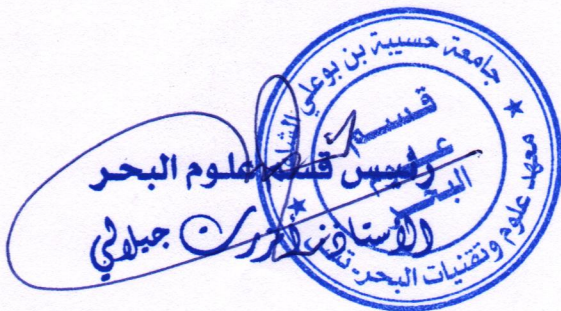 جامعة حسيبة بن بوعلي
معهد علوم وتقنيات البحر
قسم
علوم
البحر
رئيس قسم علوم البحر
الأستاذ جيلالي